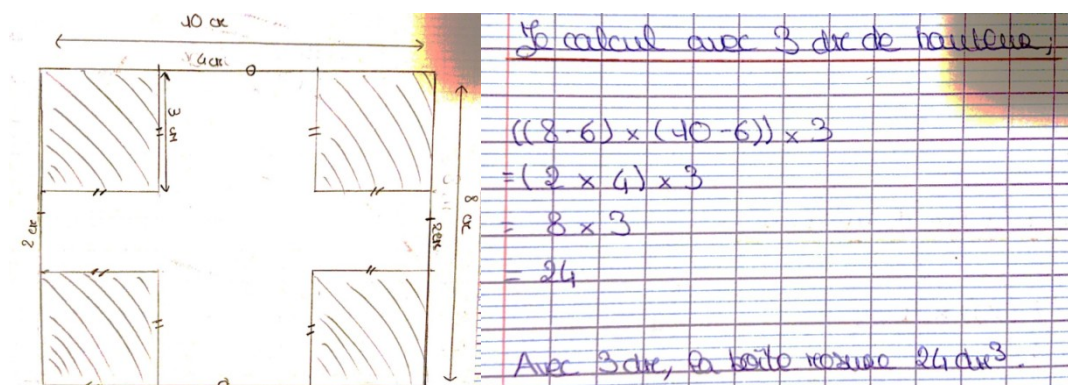 10 cm
4cm
3 cm
8 cm
2 cm
2cm
Je calcul avec 3 dm de hauteur;
((8-6) × (10-6)) × 3
=(2 × 4) × 3
= 8 × 3
= 24
Avec 3 dm, la boite mesure 24 dm³.